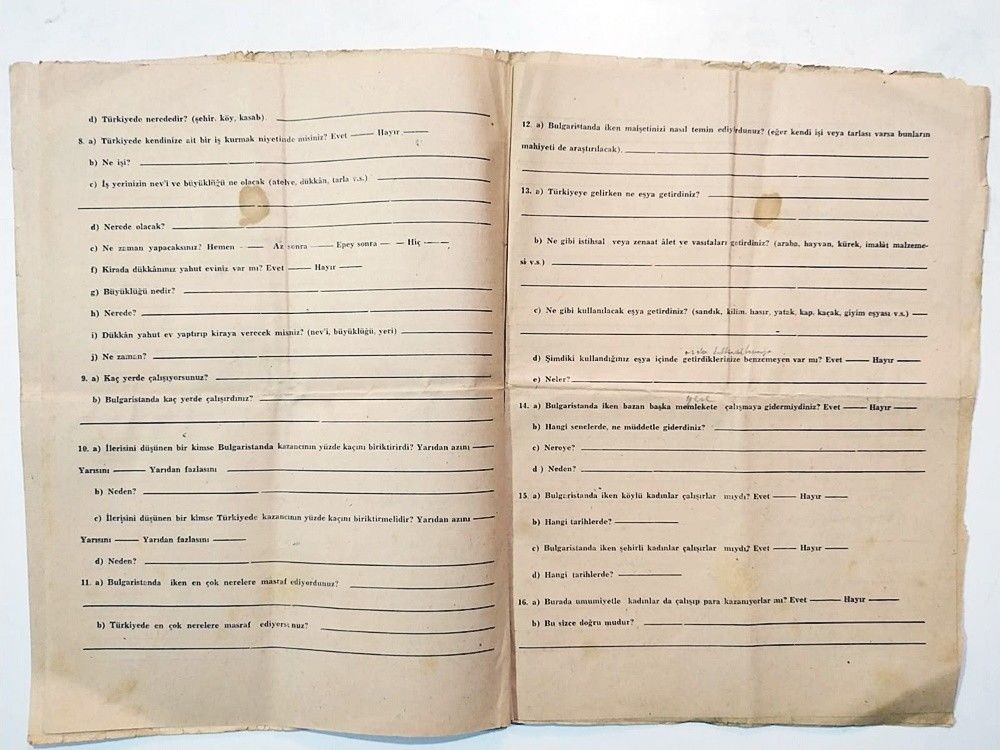 d) Türkiyede nerededir? (şehir. köy, kasab).
8. a) Türkiyede kendinize ait bir iş kurmak niyetinde misiniz? Evet —— Hayır ——
b) Ne işi?
c) İş yerinizin nev'i ve büyüklüğü ne olacak (atelye, dükkân, tarla v.s.)
d) Nerede olacak?
e) Ne zaman yapacaksınız? Hemen —— Az sonra —— Epey sonra —— Hiç ——
f) Kirada dükkânınız yahut eviniz var mı? Evet —— Hayır ——
g) Büyüklüğü nedir?
h) Nerede?
i) Dükkân yahut ev yaptırıp kiraya verecek misniz? (nev'i, büyüklüğü, yeri)
j) Ne zaman?
9. a) Kaç yerde çalışıyorsunuz?
b) Bulgaristanda kaç yerde çalışırdınız?
10. a) İlerisini düşünen bir kimse Bulgaristanda kazancının yüzde kaçını biriktirirdi? Yarıdan azını ——
Yarısını —— Yarıdan fazlasını
b) Neden?
c) İlerisini düşünen bir kimse Türkiyede kazancının yüzde kaçını biriktirmelidir? Yarıdan azını ——
Yarısını —— Yarıdan fazlasını ——
d) Neden?
11. a) Bulgaristanda iken en çok nerelere masraf ediyordunuz?
b) Türkiyede en çok nerelere masraf ediyorsunuz?
12. a) Bulgaristanda iken maişetinizi nasıl temin ediyordunuz? (eğer kendi işi veya tarlası varsa bunların
mahiyeti de araştırılacak).
13. a) Türkiyeye gelirken ne eşya getirdiniz?
b) Ne gibi istihsal veya zenaat âlet ve vasıtaları getirdiniz? (araba, hayvan, kürek, imalât malzeme-
si v.s.)
c) Ne gibi kullanılacak eşya getirdiniz? (sandık, kilim, hasır, yatak, kap, kaçak, giyim eşyası v.s.) ——
d) Şimdiki kullandığınız eşya içinde getirdiklerinize benzemeyen var mı? Evet —— Hayır ——
e) Neler?
14. a) Bulgaristanda iken bazan başka memlekete çalışmaya gidermiydiniz? Evet —— Hayır ——
b) Hangi senelerde, ne müddetle giderdiniz?
c) Nereye?
d) Neden?
15. a) Bulgaristanda iken köylü kadınlar çalışırlar mıydı? Evet —— Hayır ——
b) Hangi tarihlerde?
c) Bulgaristanda iken şehirli kadınlar çalışırlar mıydı? Evet —— Hayır ——
d) Hangi tarihlerde?
16. a) Burada umumiyetle kadınlar da çalışıp para kazanıyorlar mı? Evet —— Hayır ——
b) Bu sizce doğru mudur?